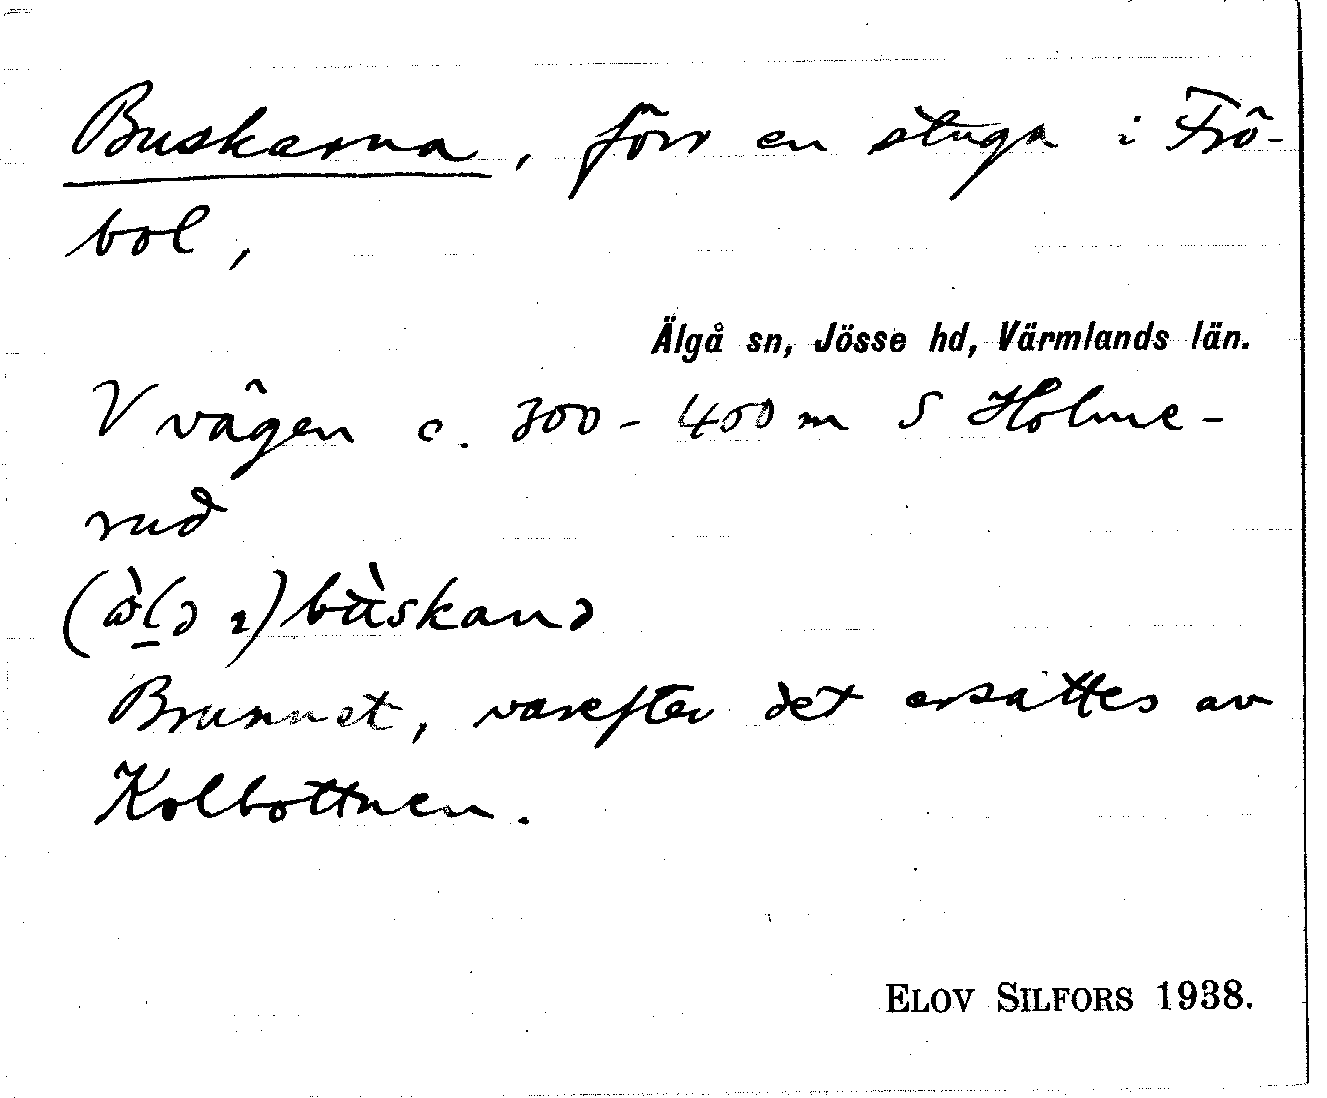 Buskarna, förr en stuga i Frö-
bol,
Älgå sn, Jösse hd, Värmlands län.
V vägen c. 300 - 400 m S Holme-
rud
bùskanə
Brunnet, varefter det ersattes av
Kolbottnen.
ELOV SILFORS 1938.